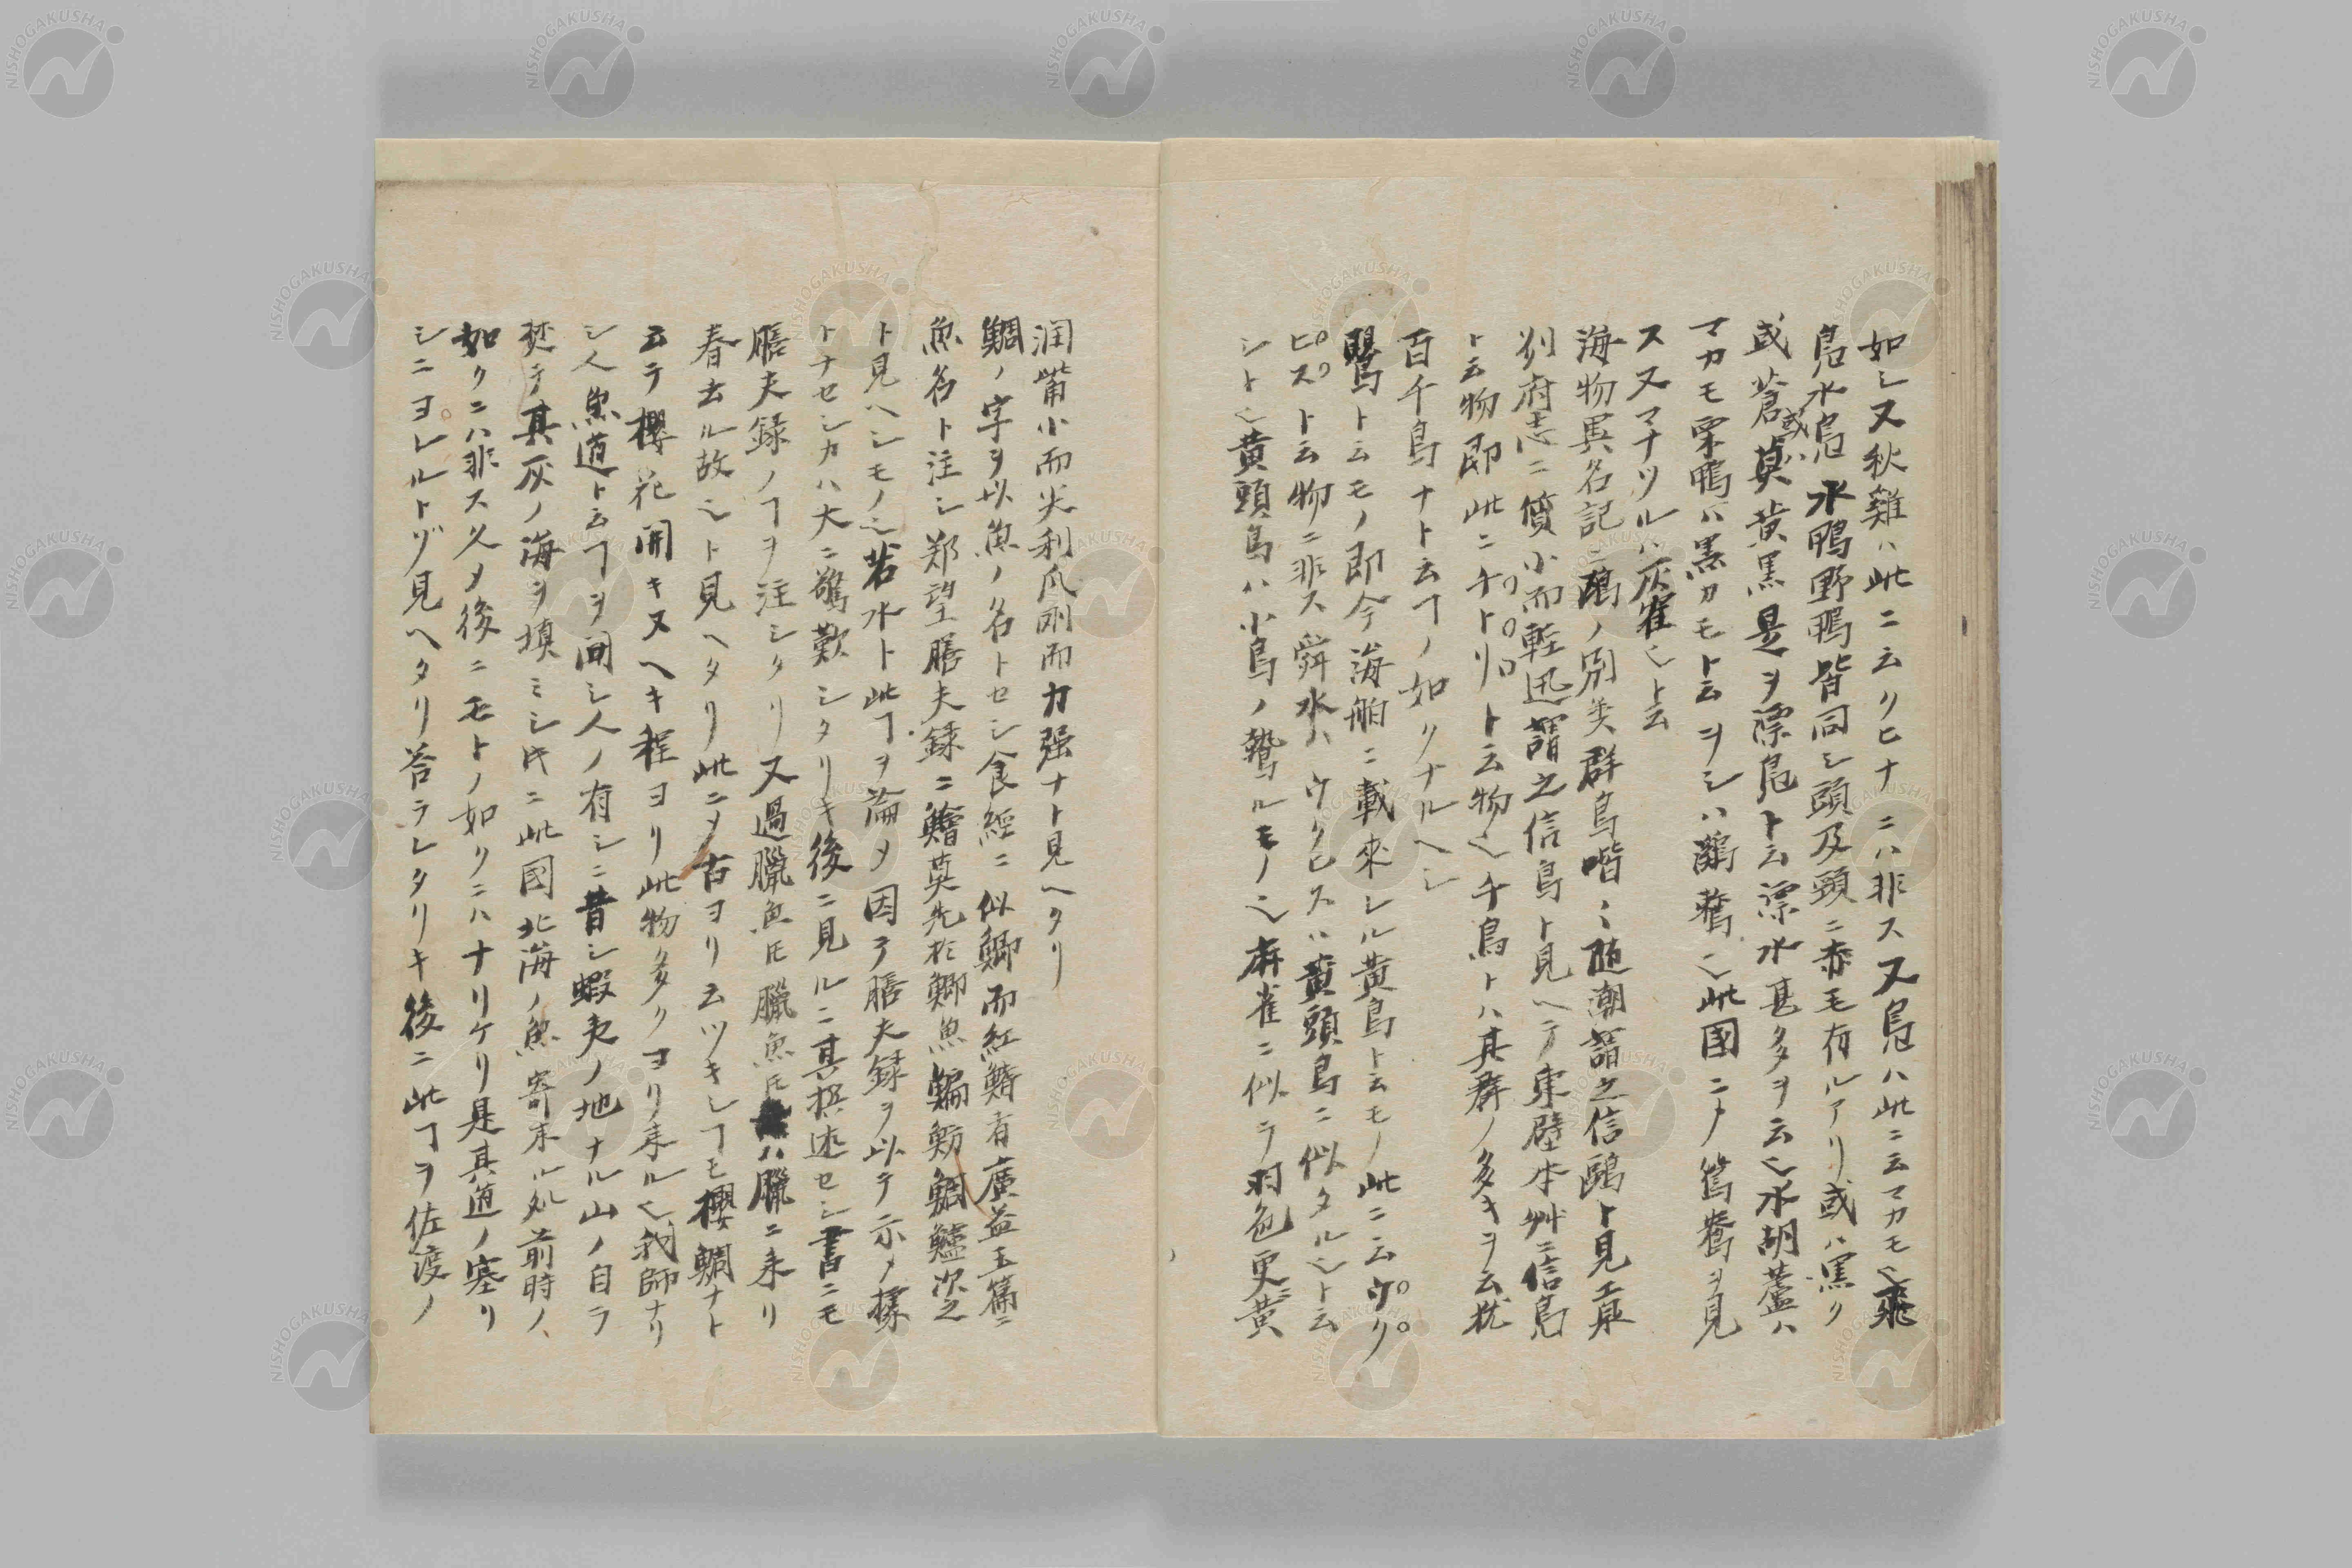 如シ又秋雞ハ此ニ云クヒナニハ非ス又鳬ハ此ニ云マカモ也
鳬水鳬水鴨野鴨皆同シ頭及頸ニ赤毛有ルアリ或ハ黒ク
或蒼或ハ黄黒是ヲ漂鳬ト云漂水甚多ヲ云也水胡蘆ハ
マカモ栗鴨ハ黒カモト云ヲシハ鸂鶒也此國ニテ鴛鴦ヲ見
ス又マナツルハ灰崔也ト云
海物異名記ニ鷗ノ別類群鳥喈〻随潮謂之信鷗ト見エ眞
別府志ニ質小而輕迅謂之信鳥ト見ヘテ東壁本艸ニ信鳥
ト云物即此ニチトリト云物也千鳥ト八其群ノ多キヲ云犹
百千鳥ナト云フノ如クナルヘシ
鸎ト云モノ即今海舶ニ載來レル黄鳥ト云モノ此ニ云ウク
ヒスト云物ニ非ス舜水ハウクヒスハ黄頭鳥ニ似タル也ト云
シト也黄頭鳥ハ小鳥ノ鷙ルモノ也麻雀ニ似テ羽色更黄
润觜小而尖利爪剛而力强ナト見ヘタリ
鯛ノ字ヲ以魚ノ名トセシ食經ニ似鯽而紅鰭者廣益玉篇ニ
魚名ト注シ郑望膳夫録ニ鱠莫先於鯽魚鯿魴鯛鱸次之
ト見ヘシモノ也若水ト此フヲ論メ因テ膳夫録ヲ以テ示メ據
トナセシカハ大ニ驚歎シタリキ後ニ見ルニ其撰述セシ書ニモ
膳夫録ノフヲ注シタリ又過臘魚氏臘魚氏ハ臘ニ来リ
春去ル故也ト見ヘタリ此ニメ古ヨリ云ツキシフモ櫻鯛ナト
云テ櫻花開キヌヘキ程ヨリ此物多クヨリ来ル也我師ナリ
シ人魚道ト云フヲ聞シ人ノ有シニ昔シ蝦夷ノ地ナル山ノ自ラ
焚テ其灰ノ海ヲ填ミシ時ニ此國北海ノ魚寄来ル処前時ノ
如クニハ非ス久メ後ニモトノ如クニハナリケリ是其道ノ塞リ
シニヨレルトゾ見ヘタリ答ラレタリキ後ニ此フヲ佐渡ノ